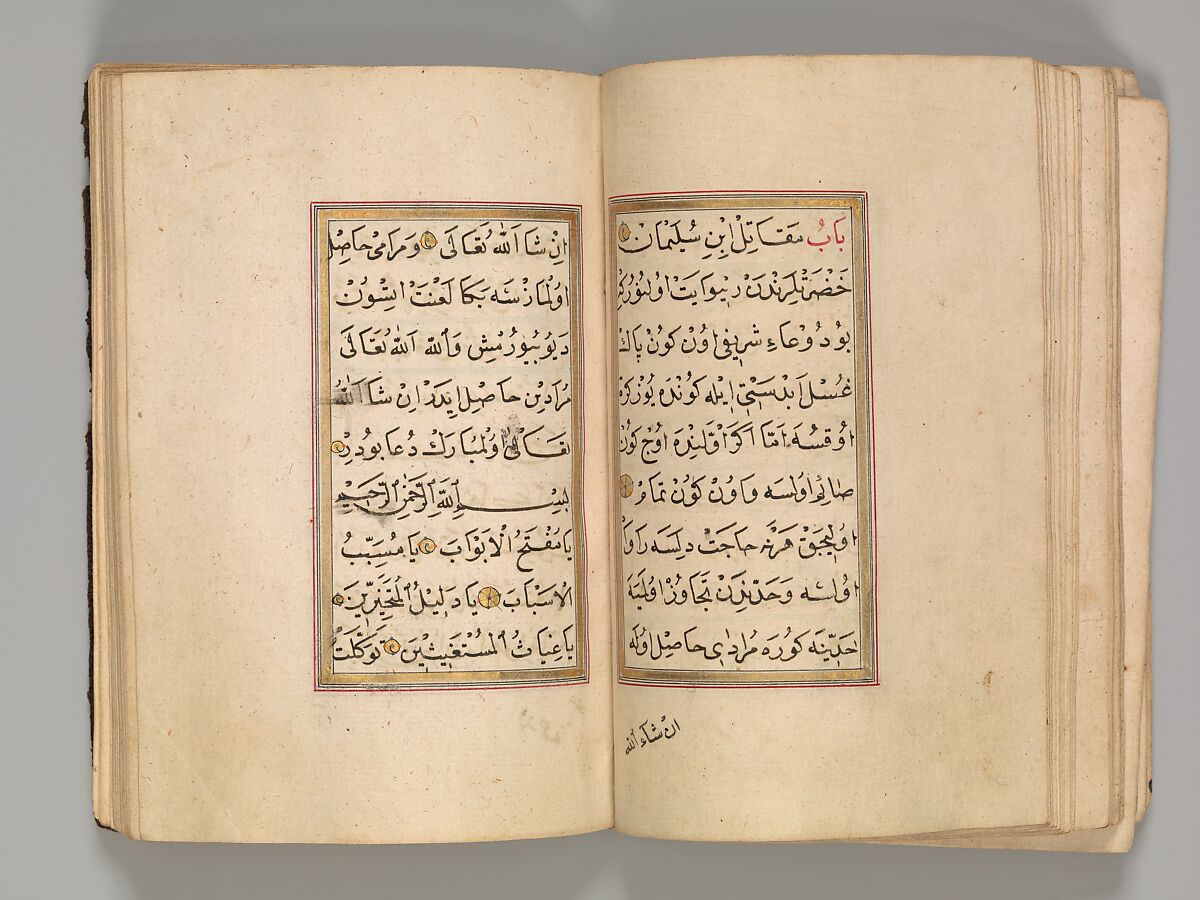 بَابُ مَقَاتِلْ ابْنِ سُلَيْمَانْ
حَضْرَتْلَرِنْدَنْ رِيوَايَتْ اوُلنُورْكِمْ
بُو دُوعَاءِ شَرِيفِى اوُنْ كُونْ پَاكْ
غُسْل اَبْدَسْتِى اِيلَه كُونْدَه يُوزْكَرَه
اوُقُسَه اَمَّا اَكَرْ اَوَّلِنْدَه اوُجْ كُونْ
صَائِمْ اوُلْسَه وَاوُنْ كُونْ تَمَامْ
اوُلِيجَقْ هَرْنَه حَاجَتْ دِلَسَه رَاوَا
اوُلْسَه وَحَدِّنْدَنْ تَجَاوُزْ اوُلْمَيَه
حَدِّينَه كُورَه مُرَادِى حَاصِلْ اوُلَه
ان شاء الله
اِنْ شَا اَللّٰه تَعَالَى وَمَرَامِى حَاصِلْ
اوُلْمَازْسَه بَكَا لَعْنَتْ اتِسُونْ
دَيُو بُيُورْمُشْ وَاللّٰه اَللّٰه تَعَالَى
مُرَادِينْ حَاصِلْ اِيدَرْ اِنْ شَا اَللّٰه
تَعَالَى اوُلْمُبَارَكْ دُعَا بُودُرْ
بِسْــمِ اللّٰهِ الرَّحْمٰنِ الرَّحِيمِ
يَا مُفَتِّحَ الْاَبْوَابَ يَا مُسَبِّبُ
الْاَسْبَابَ يَا دَلِيلُ الْمُتَحَيِّرِينَ
يَا غِيَاثُ الْمُسْتَغِيثِينَ تَوَكَّلْتُ